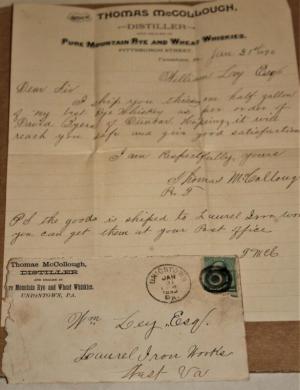 THOMAS McCOLLOUGH,
DISTILLER
PURE MOUNTAIN RYE AND WHEAT WHISKIES.
PITTSBURGH STREET.
Jan 21st
William Ley Esqr
Dear Sir
I ship you thireon half gallon
of my best Rye Whiskey as per order of
David of Dunbar Hopeing it will
reach you safe and give good satisfaction
I am Respectfully, yours
Thomas McCollough
P.S the goods is shiped to Laurel Iron works
you can get them at your Post office
T McC
Thomas McCollough,
DISTILLER
AND DEALER IN
Pure Mountain Rye and Wheat Whiskies.
UNIONTOWN, PA.
UNIONTOWN
JAN
PA.
Wm Ley Esqr.
Laurel Iron Works
West Va